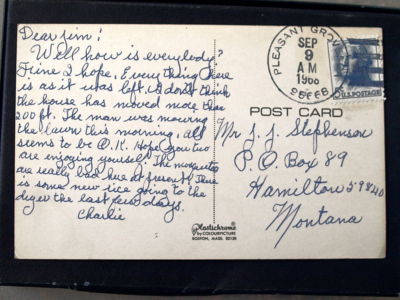 Dear Jim!
Well how is everybody?
Fine I hope. Everything here
is as it was left. I don't think
the house has moved more than
200 ft. The man was mowing
the lawn this morning, all
seems to be O.K. Hope you two
are enjoying yourself. The mosquitos
are really bad here at present. There
is some new rice going to the
dryer the last few days.
Charlie
PLEASANT GROVE
SEP
9
AM
1966
95668
U.S. POSTAGE
POST CARD
Mr J. J. Stephenson
P. O. Box 89
Hamilton 59840
Montana
Plastichrome
by COLOURPICTURE
BOSTON, MASS. 02130